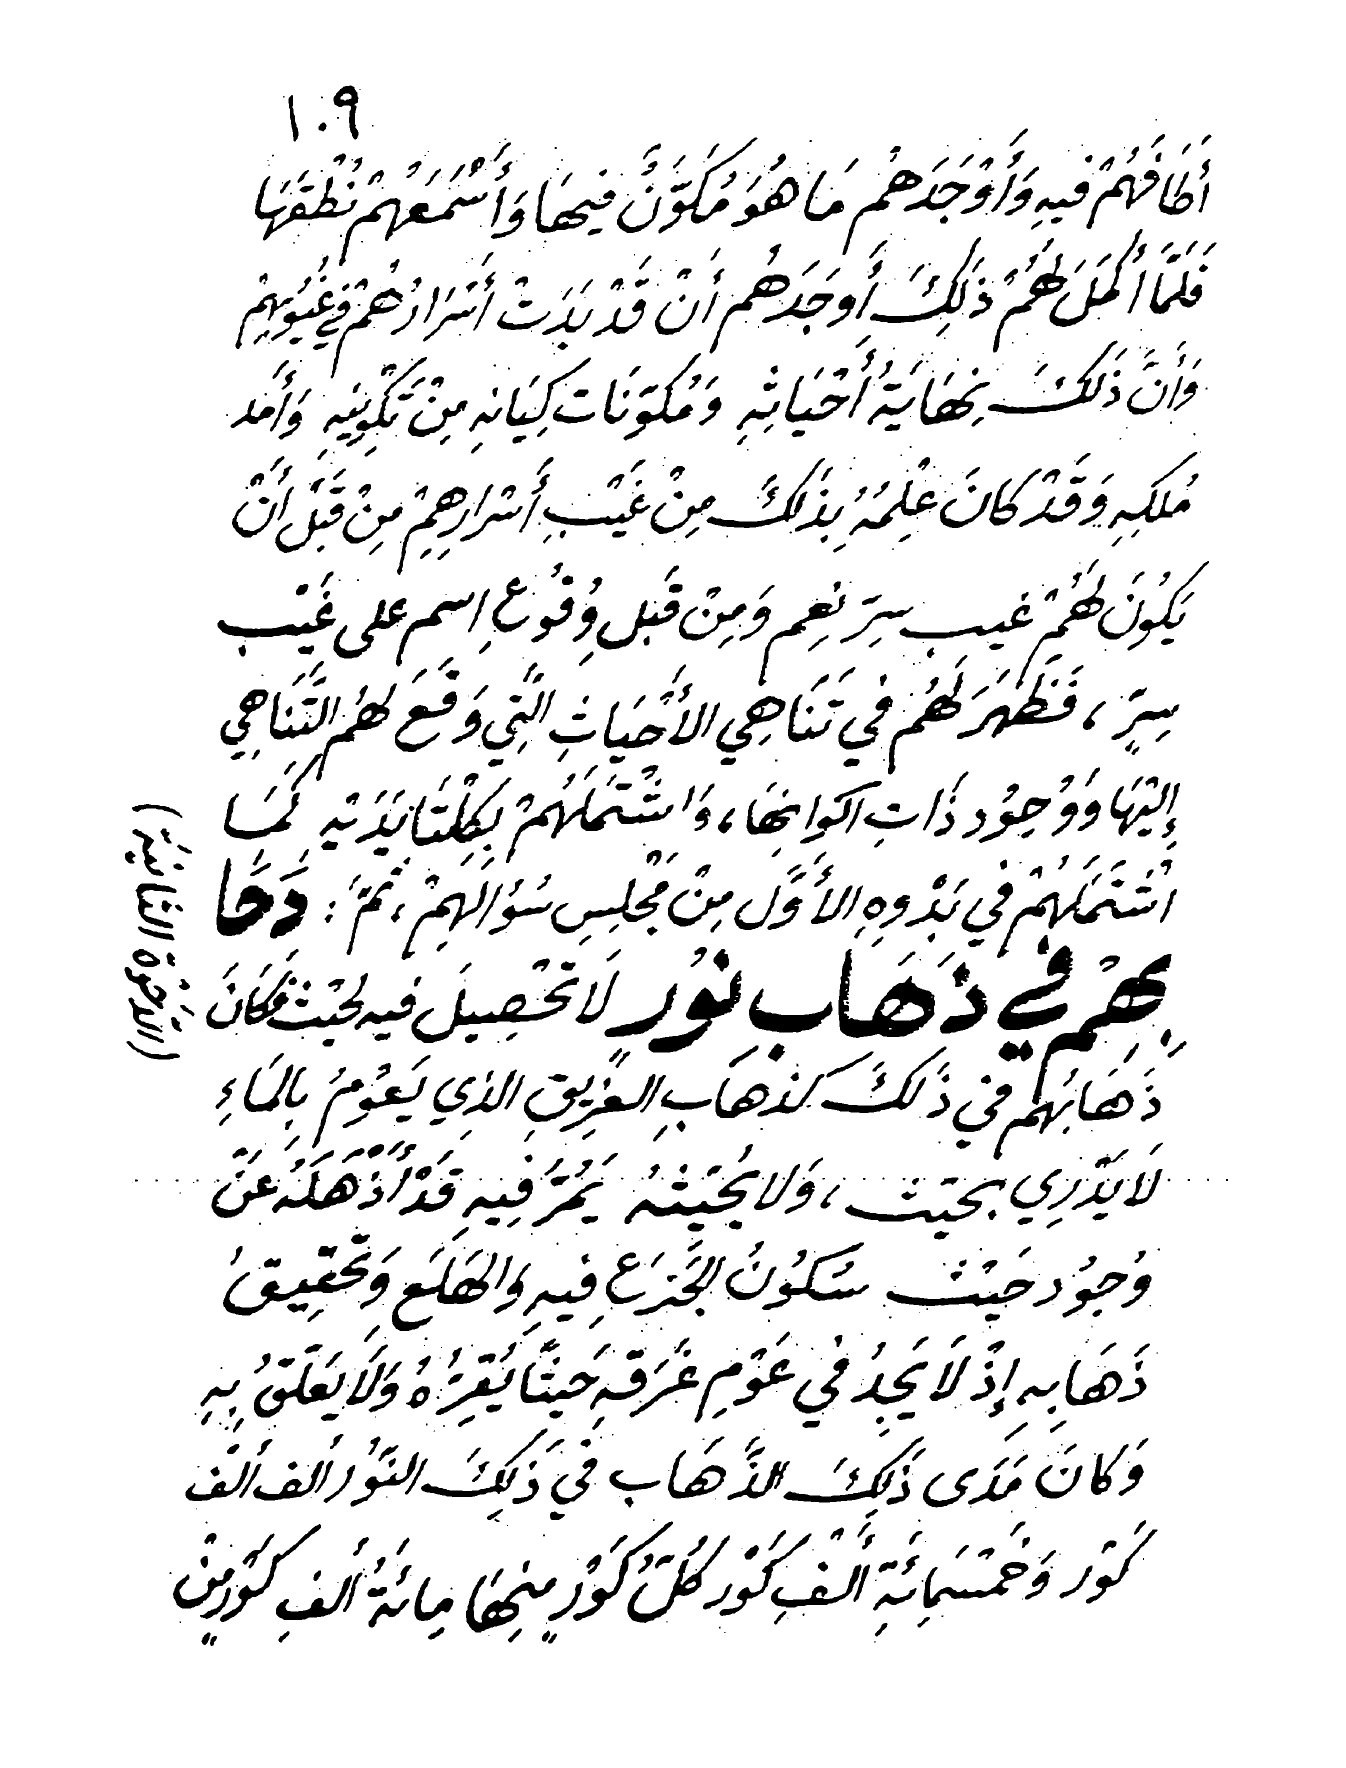 ١٠٩
أَطَافَهُمْ فِيهِ وَأَوْجَدَهُم مَا هُوَ مُكَوَّنٌ فِيهَا وَأَسْمَعَهُمْ نُطْقَهَا
فَلَمَّا أكمَلَ لَهُمْ ذَلِكَ أَوجَدَهُم أَنْ قَدْ بَدَتْ أَسْرَارُهُمْ فِي غُيُوبِهِمْ
وَأَنَّ ذَلكَ نِهَايَةُ أَحْيَاثِهِ وَمُكَوّنَات كِيَانِهِ مِنْ تَكْوِينِهِ وَأَمَد
مُلكِهِ وَقَدْ كانَ عِلْمُهُ بِذَلكَ مِنْ غَيْبِ أَسْرَارِهِمْ مِنْ قَبْل أَنْ
يَكُونَ لَهُمْ غيب سِرّ نِعِم وَمِنْ قَبل وُقُوعِ اسم على غَيْب
سِرٍّ، فَظَهَرَ لَهُم في تَنَاهِي الأَحْيَاثِ الَّتِي وَقَعَ لهُم التَّنَاهِي
إِليْهَا وَوُجُود ذَاتِ اكوانِهَا، وَاشْتَمَلَهُمْ بِكِلْتَا يَدَيْهِ كَمَا
اشْتَمَلَهُمْ في بَدْوِهِ الأَوَّل مِنْ مَجْلِسِ سُؤالهِمْ، ثمّ: دَحَا
بِهِمْ فِي ذَهَابِ نُور لَا تَحْصِيلَ فيه لحيْث فَكَانَ
ذَهَابُهُم في ذَلكَ كذهَابِ الغَرِيقِ الذِي يَعُومُ بِالمَاءِ
لَا يَدْرِي بحيث، وَلا يُحَيّثهُ يَمُرّ فِيهِ قَدْ أَذْهَلَهُ عَنْ
وُجُود حَيْث سُكونُ الجَزَعِ فِيهِ وَالهَلَع وَتَحْقِيقُ
ذَهَابِهِ إِذْ لَا يَجِدُ في عَوْمِ غَرَقِهِ حَيثًا يُقِرُّهُ وَلَا يَعْلَقُ بِهِ
وَكانَ مَدَى ذَلِكَ الذَّهَاب فِي ذَلِكَ النّوُر أَلف أَلْف
كَوْر وَخَمْسمَائَةِ أَلْفِ كَوْر كُلّ كَوْرٍ مِنهَا مِائَةُ أَلفِ كَوْرٍ مِنْ
(الدَّحْوَة الثانية)